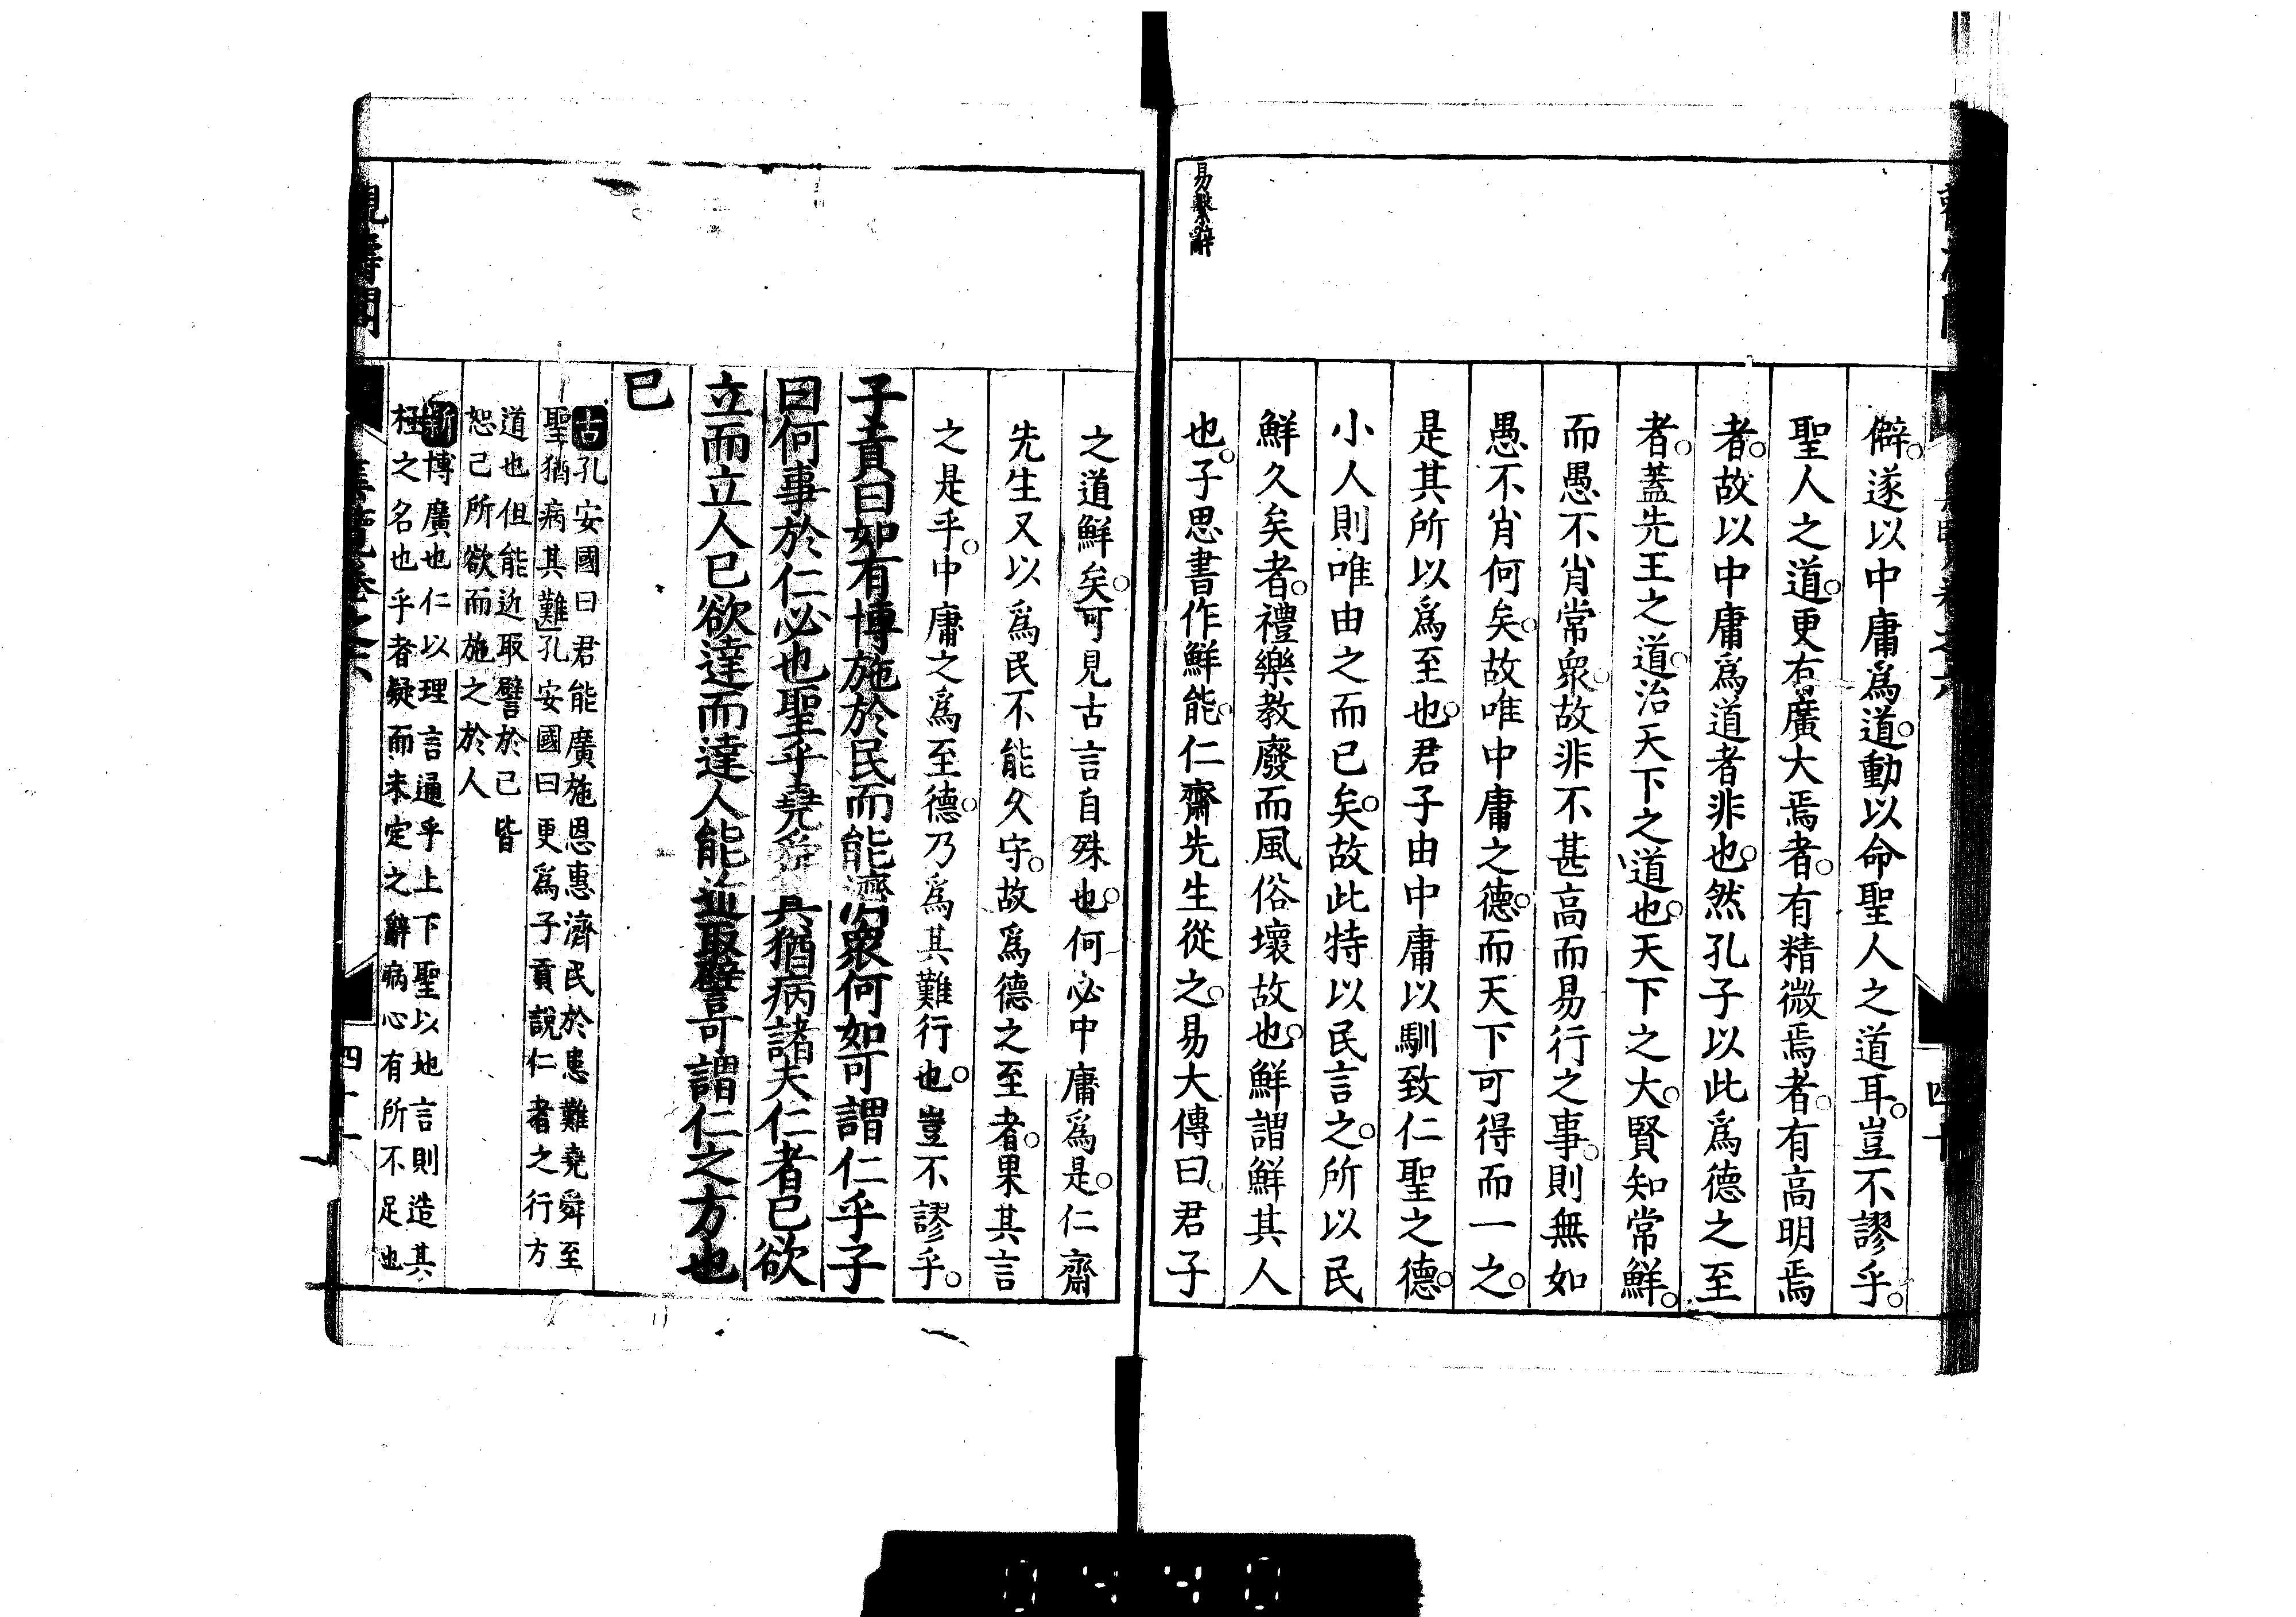 易繫辭
僻。遂以中庸爲道。動以命聖人之道耳。豈不謬乎。
聖人之道。更有廣大焉者。有精微焉者。有高明焉
者。故以中庸爲道者非也。然孔子以此爲德之至
者。蓋先王之道。治天下之道也。天下之大。賢知常鮮。
而愚不肖常衆。故非不甚高而易行之事。則無如
愚不肖何矣。故唯中庸之德。而天下可得而一之。
是其所以爲至也。君子由中庸以馴致仁聖之德。
小人則唯由之而已矣。故此特以民言之。所以民
鮮久矣者。禮樂教廢而風俗壞故也。鮮謂鮮其人
也。子思書作鮮能。仁齋先生從之。易大傳曰。君子
之道鮮矣。可見古言自殊也。何必中庸爲是。仁齋
先生又以爲民不能久守。故爲德之至者。果其言
之是乎。中庸之爲至德。乃爲其難行也。豈不謬乎。
子貢曰如有博施於民而能濟衆何如可謂仁乎子
曰何事於仁必也聖乎堯舜其猶病諸夫仁者已欲
立而立人已欲達而達人能近取譬可謂仁之方也
已
古孔安國曰君能廣施恩惠濟民於患難堯舜至
聖猶病其難孔安國曰更爲子貢說仁者之行方
道也但能近取譬於已皆
恕己所欲而施之於人
新博廣也仁以理言通乎上下聖以地言則造其
極之名也乎者疑而未定之辭病心有所不足也
四十一
0440